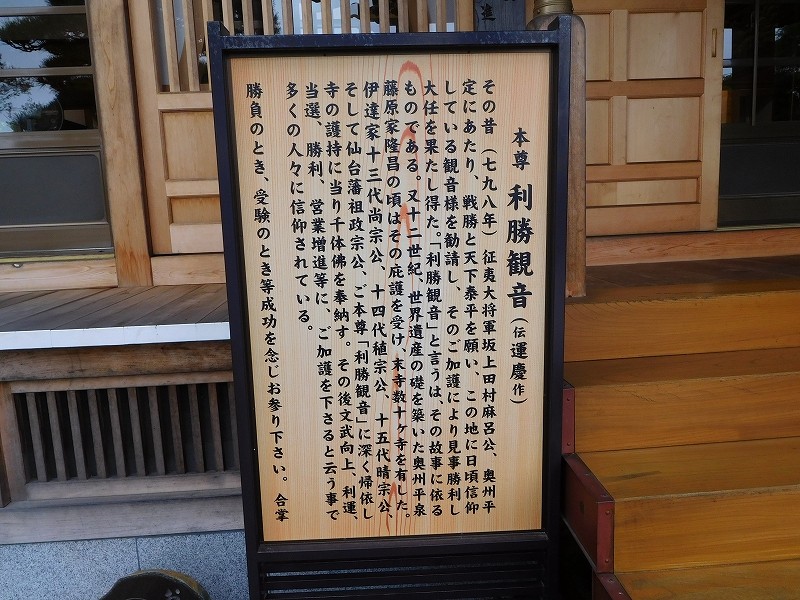 本尊 利勝観音（伝運慶作）
その昔（七九八年）征夷大将軍坂上田村麻呂公、奥州平
定にあたり、戦勝と天下泰平を願い、この地に日頃信仰
している観音様を勧請し、そのご加護により見事勝利し
大任を果たし得た。「利勝観音」と言うは、その故事に依る
ものである。又十二世紀、世界遺産の礎を築いた奥州平泉
藤原家隆昌の頃はその庇護を受け、末寺数十ヶ寺を有した。
伊達家十三代尚宗公、十四代稙宗公、十五代晴宗公、
そして仙台藩祖政宗公、ご本尊「利勝観音」に深く帰依し
寺の護持に当り千体佛を奉納す。その後文武向上、利運、
当選、勝利、営業増進等に、ご加護を下さると云う事で
多くの人々に信仰されている。
勝負のとき、受験のとき等成功を念じお参り下さい。合掌